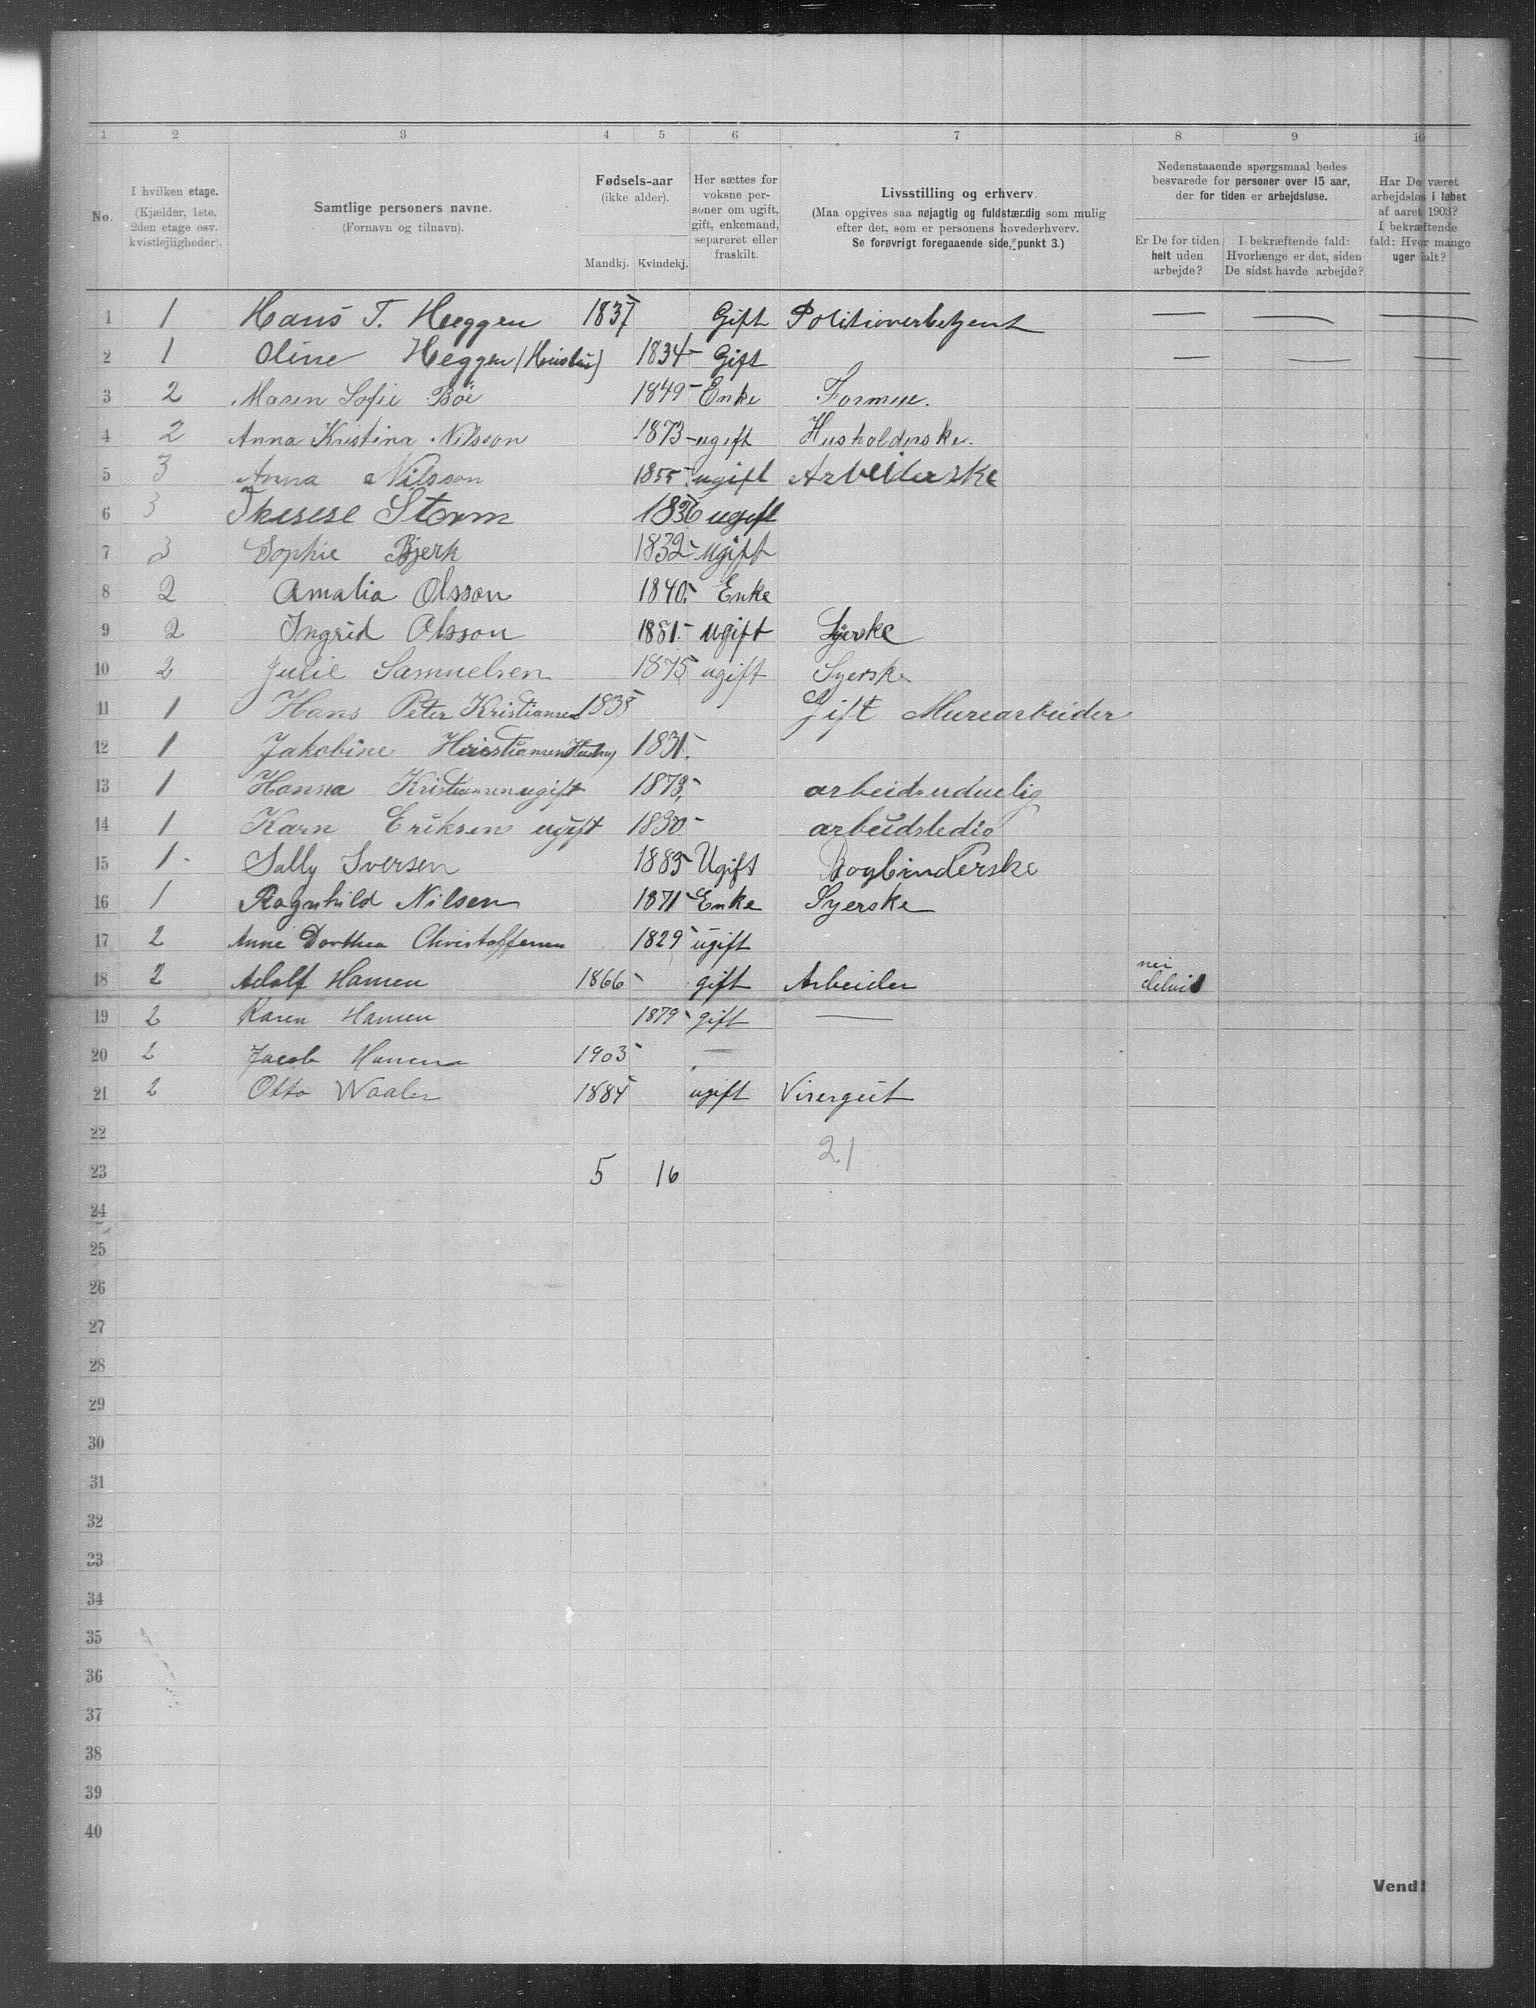 1 2 3 4 5 6 7 8 9 10
No.
I hvilken etage.
(Kjælder, 1ste,
2den etage osv.
kvistlejligheder).
Samtlige personers navne.
(Fornavn og tilnavn).
Fødsels-aar
(ikke alder).
Mandkj. Kvindekj.
Her sættes for
voksne per-
soner om ugift,
gift, enkemand,
separeret eller
fraskilt.
Livsstilling og erhverv.
(Maa opgives saa nøjagtig og fuldstærdig som mulig
efter det, som er personens hovederhverv.
Se forøvrigt foregaaende side, punkt 3.)
Nedenstaaende spørgsmaal bedes
besvarede for personer over 15 aar,
der for tiden er arbejdsløse.
Er De for tiden
helt uden
arbejde?
I bekræftende fald:
Hvorlænge er det, siden
De sidst havde arbejde?
Har De været
arbejdsløs i løbet
af aaret 1903?
I bekræftende
fald: Hvor mange
uger ialt?
1 1 Hans T. Heggen 1837 Gift Politioverbetjent — — —
2 1 Oline Heggen (Hustru) 1834 Gift — — —
3 2 Maren Sofie Böe 1849 Enke
4 2 Anna Kristina Nilsson 1873 ugift Husholderske.
5 3 Anna Nilsson 1855 ugift Arbeiderske
6 3 Therese Storm 1836 ugift
7 3 Sophie Bjerk 1832 ugift
8 2 Amalia Olsson 1840 Enke
9 2 Ingrid Olsson 1881 ugift Syerske
10 2 Julie Samuelsen 1875 ugift Syerske
11 1 Hans Peter Kristiansen 1838 Gift Murearbeider
12 1 Jakobine Kristiansen Hustru 1831.
13 1 Hanna Kristiansen ugift 1873, arbeidsuduelig
14 1 Karn Eriksen ugift 1830 arbeidsledig
15 1 Sally Iversen 1885 Ugift Bogbinderske
16 1 Ragnhild Nilsen 1871 Enke Syerske
17 2 Anne Dorthea Christoffersen 1829 ugift
18 2 Adolf Hansen 1866 gift Arbeider nei delvis
19 2 Karen Hansen 1879 gift —
20 2 Jacob Hansen 1903 —
21 2 Otto Waaler 1884 ugift Visergut
22 21
23 5 16
24
25
26
27
28
29
30
31
32
33
34
35
36
37
38
39
40
Vend!